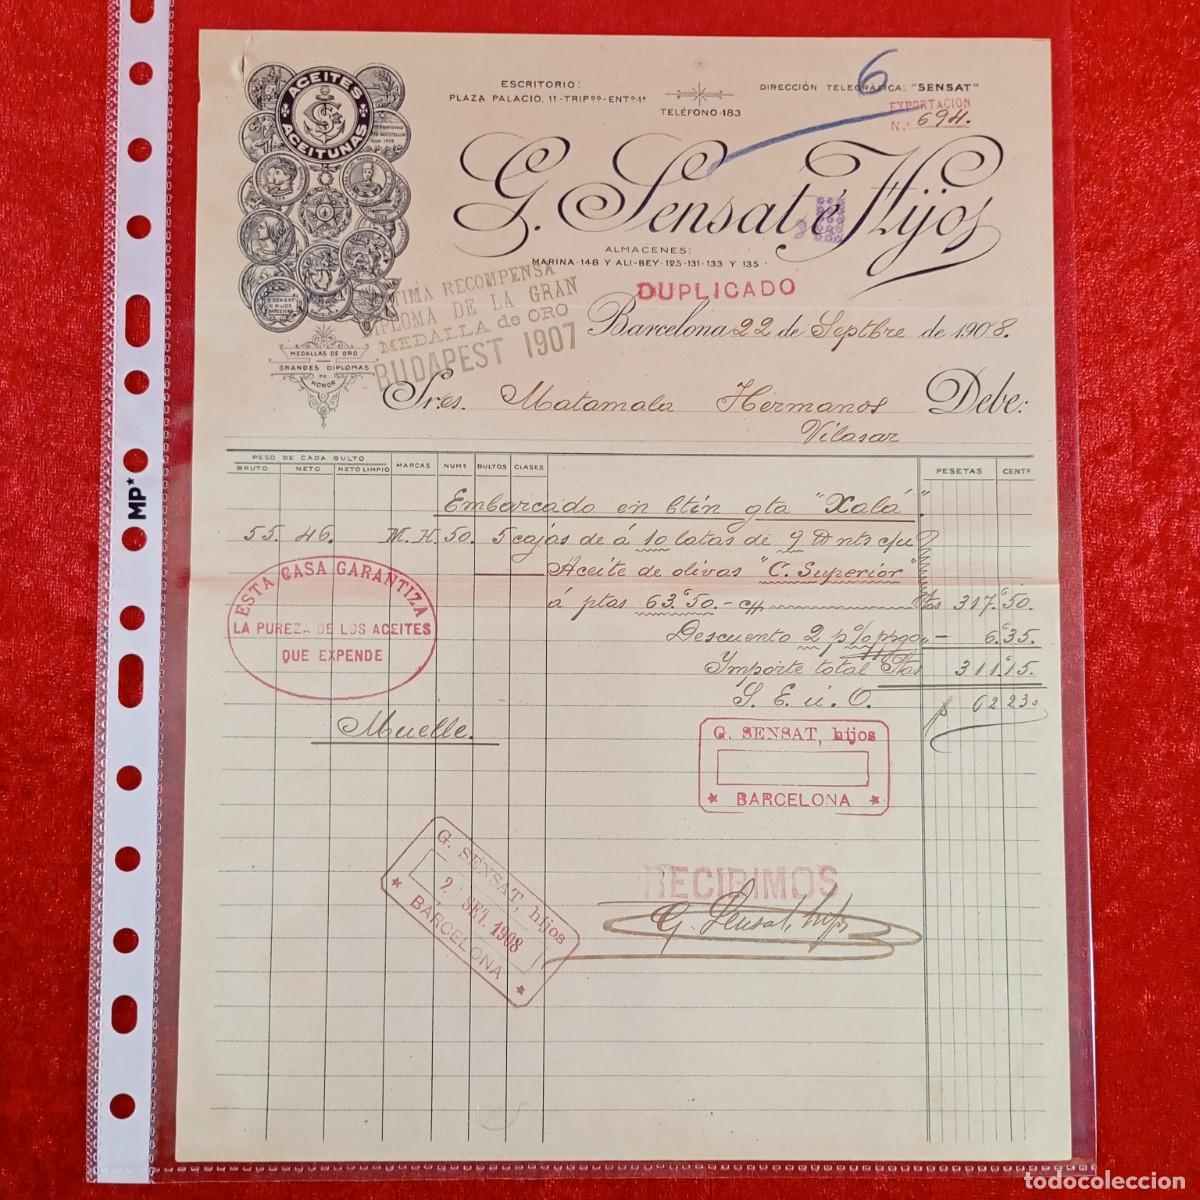 ACEITES
ACEITUNAS
ESCRITORIO:
PLAZA PALACIO, 11-TRIPº⁰-ENTº-1ª
TELÉFONO-183
DIRECCIÓN TELEGRÁFICA: "SENSAT"
6
EXPORTACIÓN
N.º 694.
G. Sensat, é Hijos
ALMACENES:
MARINA-148 Y ALI-BEY-125-131-133 Y 135
DUPLICADO
ÚLTIMA RECOMPENSA
DIPLOMA DE LA GRAN
MEDALLA de ORO
BUDAPEST 1907
MEDALLAS DE ORO
GRANDES DIPLOMAS
DE
HONOR
Barcelona 22 de Septbre de 1908.
Sres. Matamala Hermanos Debe:
Vilasar
PESO DE CADA BULTO
BRUTO NETO NETO LIMPIO MARCAS NUMS BULTOS CLASES PESETAS CENTS
Embarcado en btín gta "Xalá".
55. 46. M.H. 50. 5 cajas de á 10 latas de 9 nts c/u
Aceite de olivas "C. Superior"
á ptas 63'50.- Ptas 317'50.
Descuento 2 p% ppgo " - 6'35.
Importe total Ptas 311'15.
S. E. ú. O. 62 23.
Muelle.
ESTA CASA GARANTIZA
LA PUREZA DE LOS ACEITES
QUE EXPENDE
G. SENSAT, hijos
BARCELONA
G. SENSAT, hijos
2 SET. 1908
BARCELONA
RECIBIMOS
G. Sensat, hijos
MP
todocoleccion